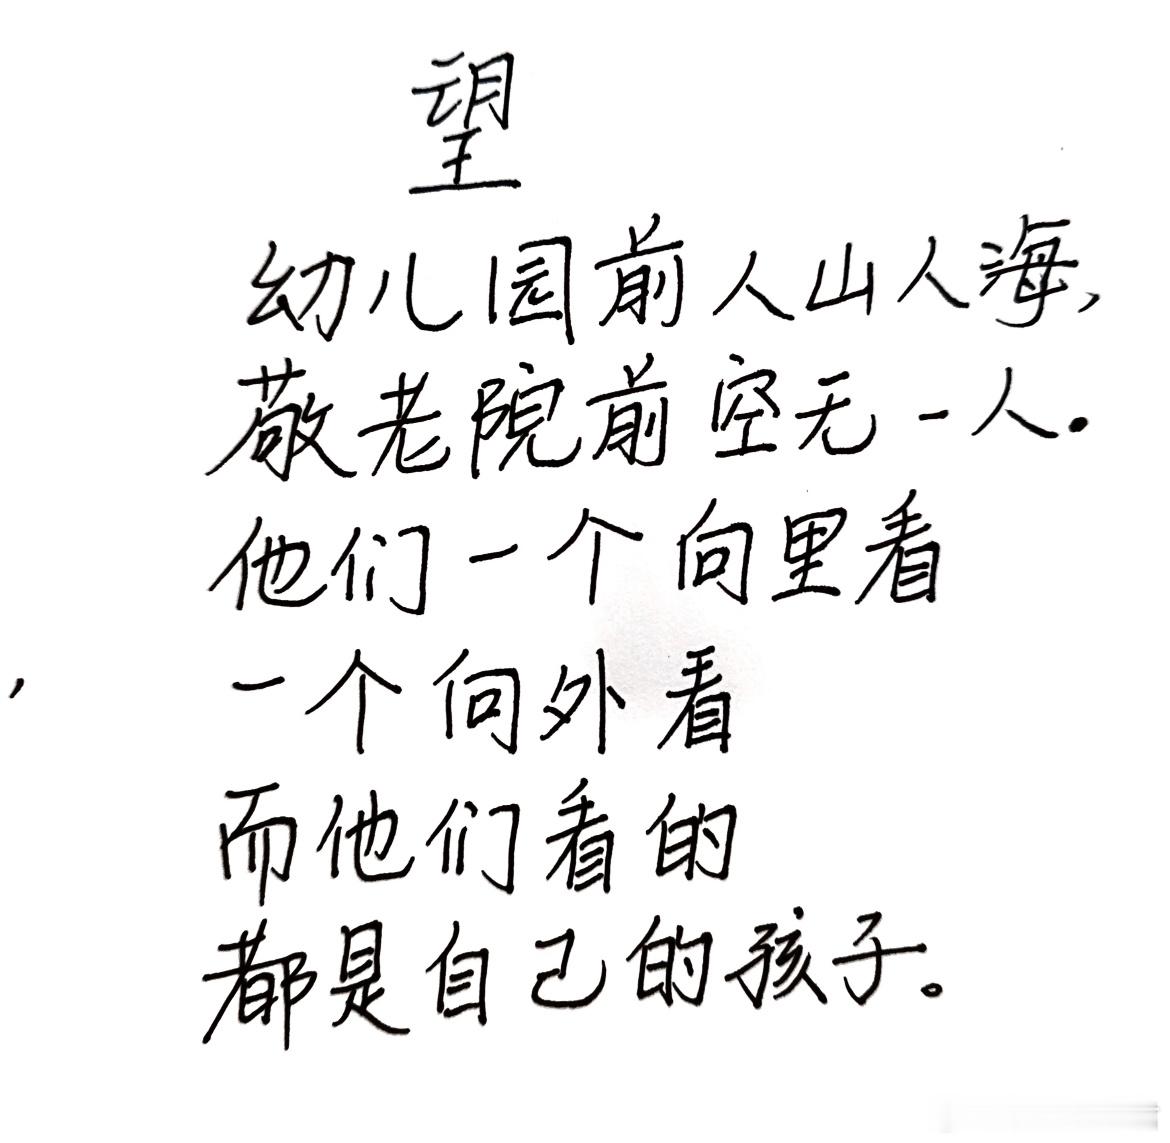 望
幼儿园前人山人海,
敬老院前空无一人.
他们一个向里看
一个向外看
而他们看的
都是自己的孩子。